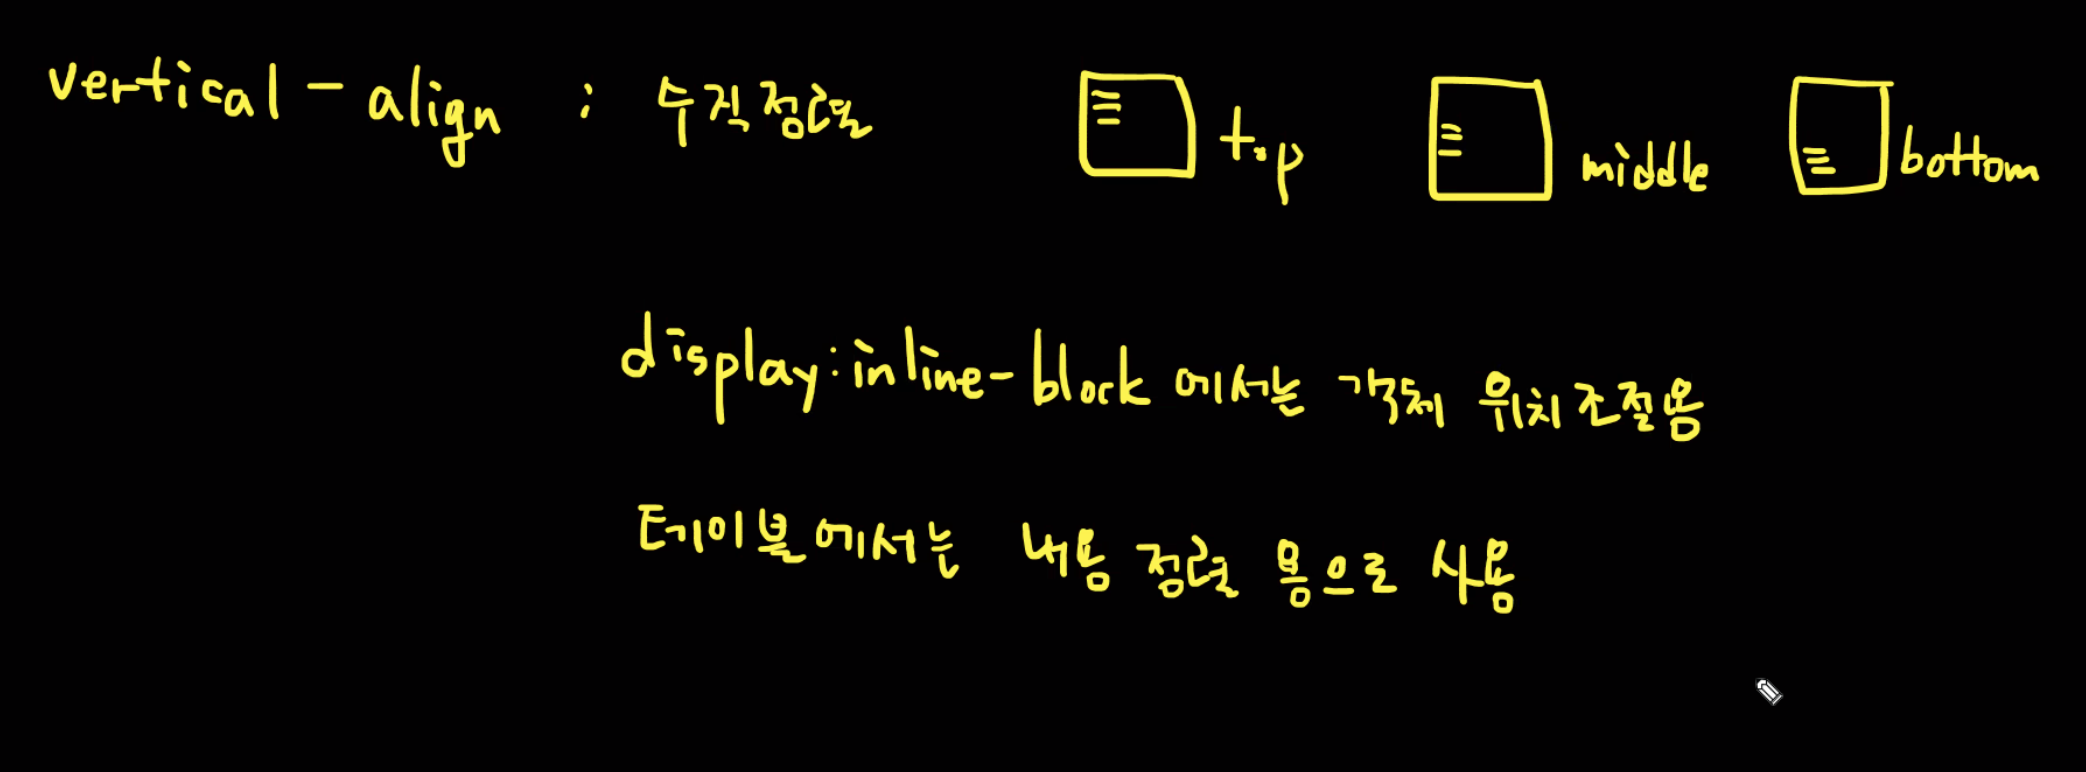 vertical-align : 수직정렬 top middle bottom
display:inline-block 에서는 객체 위치조절용
테이블에서는 내용 정렬 용으로 사용